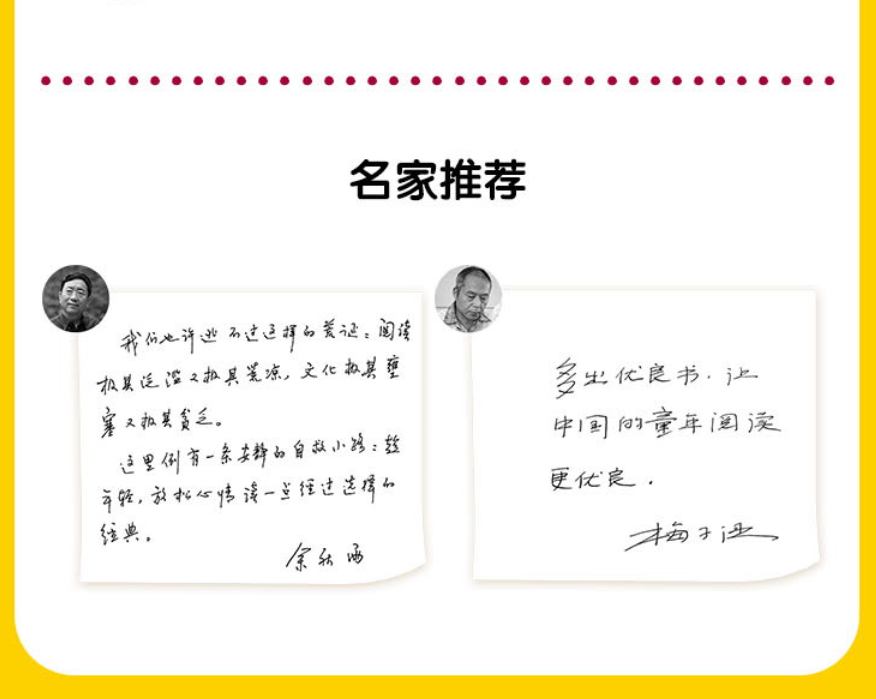 名家推荐
我们也许逃不过这样的荒诞：阅读
极其泛滥又极其荒凉，文化极其壅
塞又极其贫乏。
这里倒有一条安静的自救小路：趁
年轻，放松心情读一点经过选择的
经典。
余秋雨
多出优良书，让
中国的童年阅读
更优良.
梅子涵